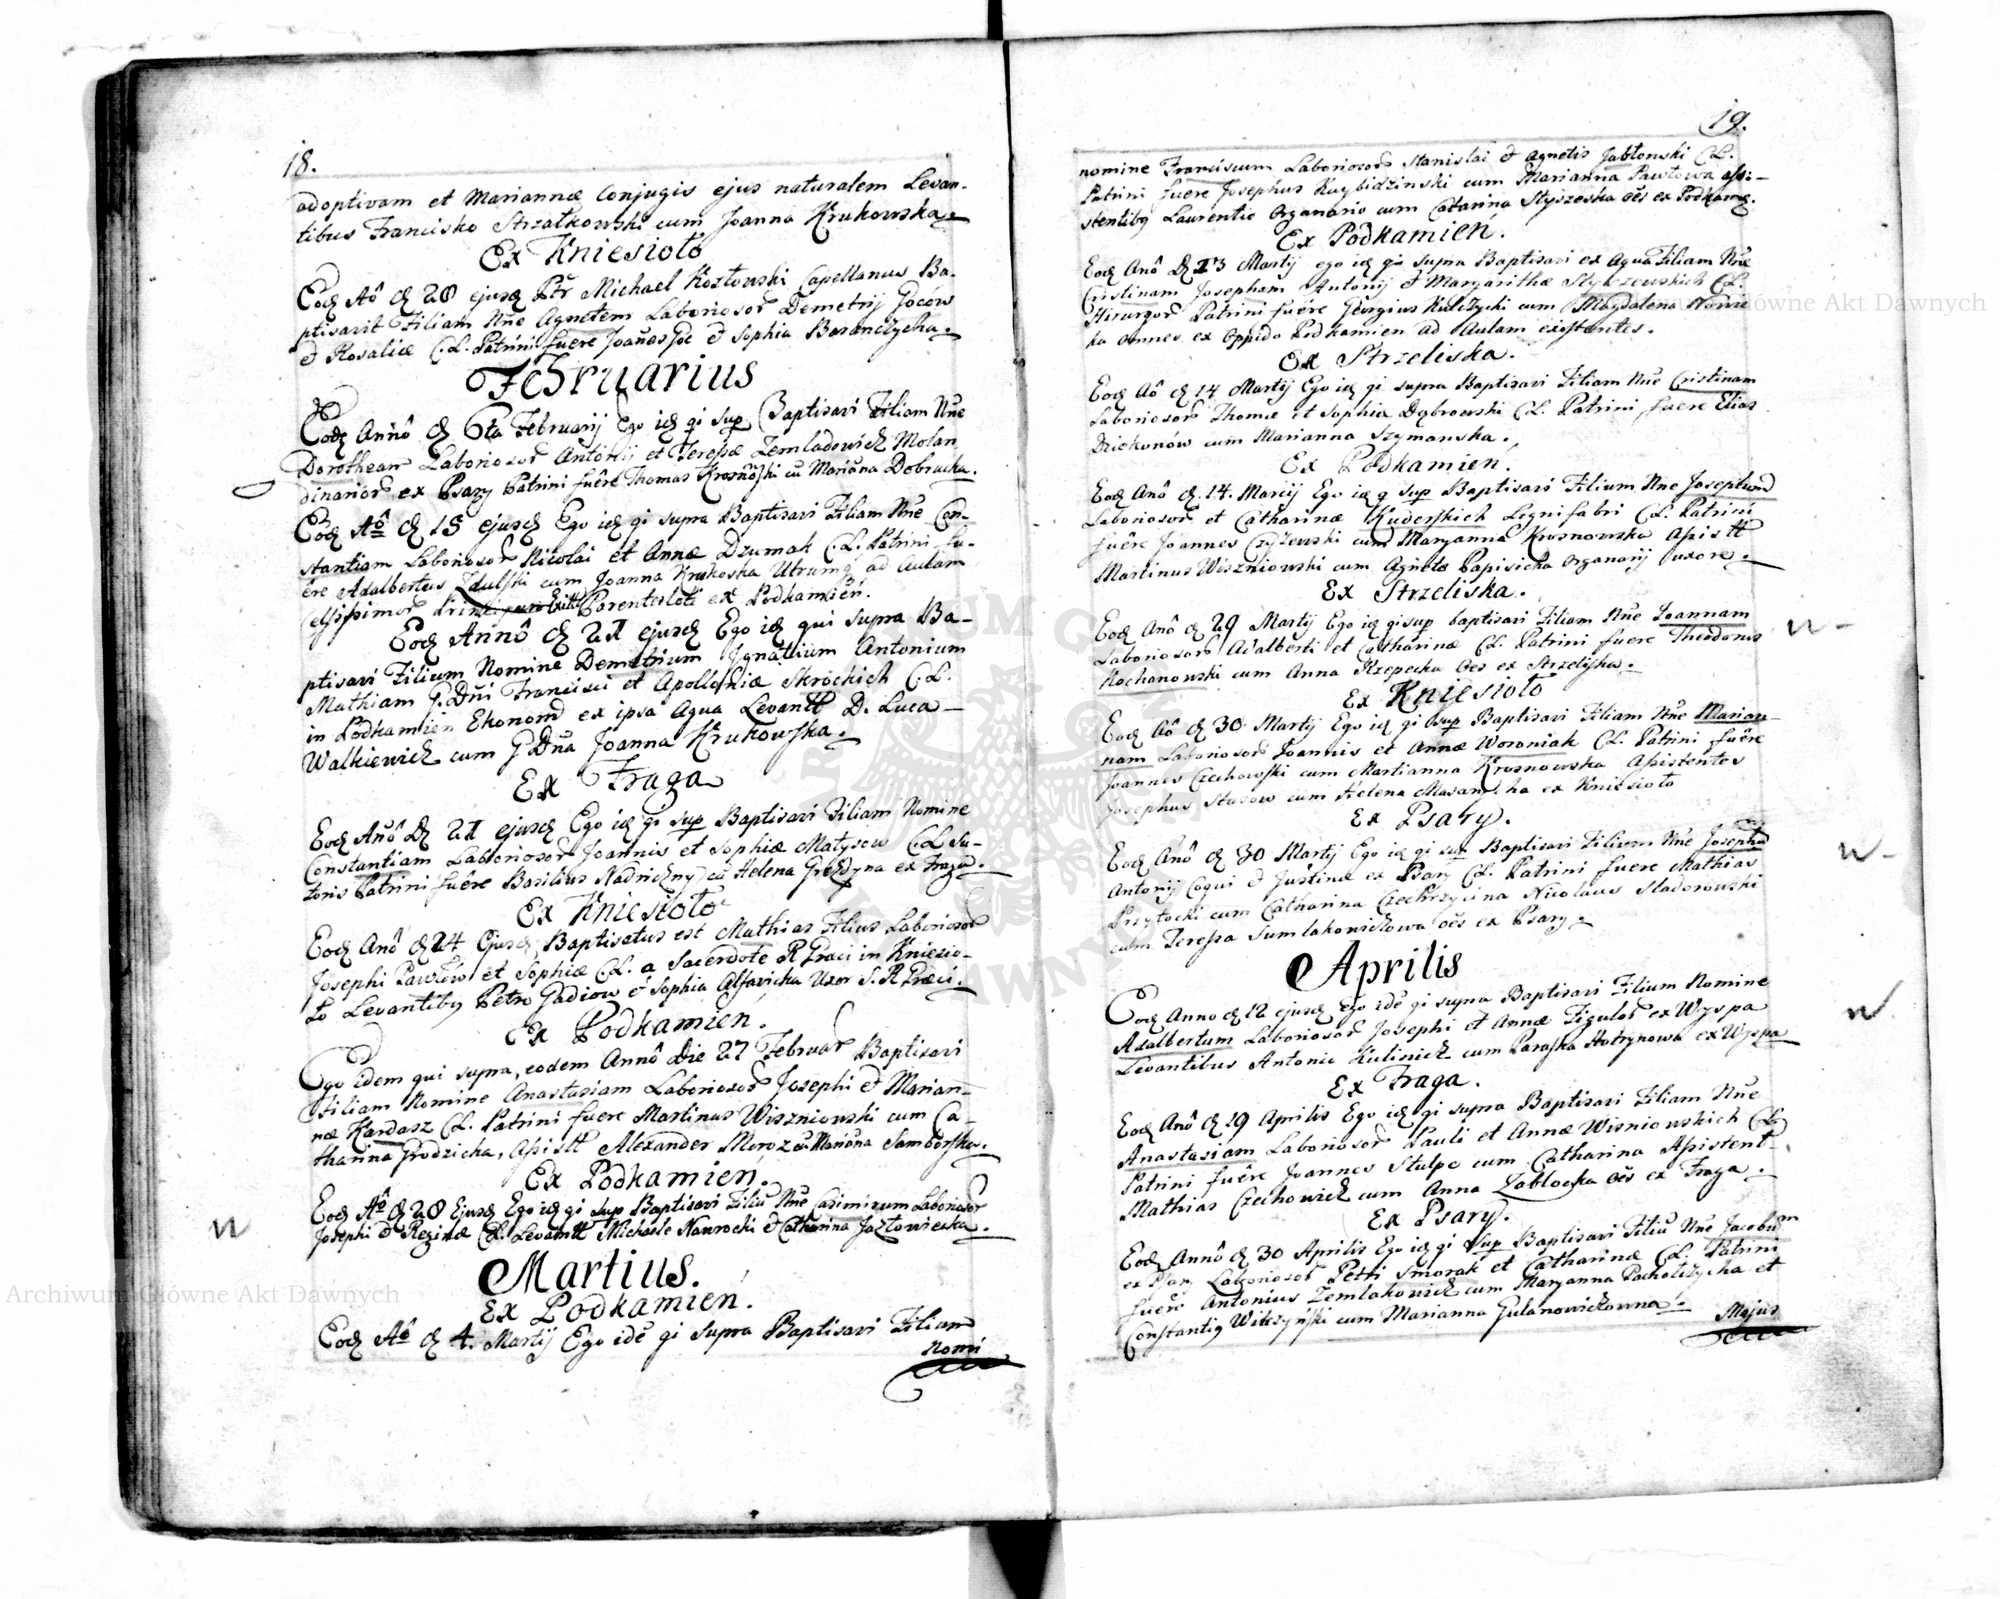 18.
adoptivam et Mariannæ Conjugis ejus naturalem Levan-
tibus Francisko Strzałkowski cum Joanna Krukowska.
Ex Kniesioło
Eodꝫ Aô dꝫ 28 ejusdꝫ Ptr Michael Kozłowski Capellanus Ba-
ptisavit Filiam Nñe Agnetem Laboriosor Demetrij Gociów
& Rosaliæ C.L. Patrini fuere Joañes & Sophia Baranczycha.
Februarius
Eodꝫ Annô dꝫ 6ta Februarij Ego idꝫ qi sup Baptisavi Filiam Nñe
Dorotheam Laboriosor Antonij et Teressæ Zemladowicz Molan
dinarior ex Psary Patrini fuêre Thomas Krosnowski cũ Mariãna Dobrucka.
Eodꝫ Aô dꝫ 15 ejusdꝫ Ego idꝫ qi supra Baptisavi Filiam Nñe Con-
stantiam Laboriosor Nicolai et Annæ Dzumak C.L. Patrini fu-
êre Adalbertus Zdulski cum Joanna Krukoska Utrumqꝫ ad Aulam
Celsissimor Parenteloti ex Podkamień.
Eodꝫ Annô dꝫ 21 ejusdꝫ Ego idꝫ qui supra Ba-
ptisavi Filium Nomine Demetrium Ignatium Antonium
Mathiam G. Dñi Francisci et Apolloniæ Skrockich C.L.
in Podkamien Ekonom ex ipsa Aqua Levantt D. Luca
Walkiewicz cum G Dña Joanna Krukowska.
Ex Fraga
Eodꝫ Añô Dꝫ 21 ejusdꝫ Ego idꝫ qi sup Baptisavi Filiam Nomine
Constantiam Laboriosor Joannis et Sophiæ Matysow C.L. Su-
toris Patrini fuêre Basilius Nadniczny cũ Helena ex Fraga.
Ex Kniesioło
Eodꝫ Anô dꝫ 24 Ejusdꝫ Baptisatus est Mathias Filius Laboriosor
Josephi Pawłów et Sophiæ C.L. a Sacerdote R Græci in Kniesio-
ło Levantibꝫ Petro Gadiow & Sophia Uxor S. R Græci.
Ex Podkamien.
Ego idem qui supra, eodem Annô Die 27 Februar Baptisavi
Filiam Nomine Anastasiam Laboriosor Josephi & Marian-
næ Kardasz C.L. Patrini fuere Martinus Wiszniowski cum Ca-
tharina Grodzicka, Assistt Alexander Moroz cũ Mariãna Samborska.
Ex Podkamien.
Eodꝫ Aô dꝫ 28 Ejusdꝫ Ego idꝫ qi sup Baptisavi Filiũ Nñe Casimirum Laboriosor
Josephi & Reginæ C.L. Levantt Michaele Nawrocki & Catharina Jazłowiecka.
Martius.
Ex Podkamien.
Eodꝫ Aô dꝫ 4. Martij Ego idẽ qi supra Baptisavi Filium
Nomi
19.
nomine Franciscum Laboriosor Stanislai & Agnetis Jabłonski C.L.
Patrini fuere Josephus Kuybidzinski cum Marianna Pawłowa assi-
stentibꝫ Laurentio Organario cum Catarina Styszeska oẽs ex Podkamꝫ.
Ex Podkamień.
Eodꝫ Anô dꝫ 13 Martij ego idꝫ qi supra Baptisavi ex Aqua Filiam Nñe
Cristinam Josepham Antonij & Margarithæ Stykzewskich C.L.
Hirurgor Patrini fuêre Georgius Kulczycki cum Magdalena
ka omnes ex Oppido Podkamien ad Aulam existentes.
Ex Strzeliska.
Eodꝫ Aô dꝫ 14 Martij Ego idꝫ qi supra Baptisavi Filiam Nñe Cristinam
Laboriosor Thomæ et Sophiæ Dąbrowski C.L. Patrini fuere Elias
Dziekonów cum Marianna Szymanska.
Ex Podkamien.
Eodꝫ Anô dꝫ 14. Marcij Ego idꝫ q sup Baptisavi Filium Nñe Josephum
Laboriosor et Catharinæ Kuderskich Lignifabri C.L. Patrini
fuêre Joannes Czyżewski cum Maryanna Krosnowska Assistt
Martinus Wiszniowski cum Agneta Papisicka Organarij uxore.
Ex Strzeliska.
Eodꝫ Anô dꝫ 29 Martij Ego idꝫ qi sup baptisavi Filiam Nñe Joannam
Laboriosor Adalberti et Catharinæ C.L. Patrini fuere Theodorus
Kochanowski cum Anna Rzepecka oẽs ex Strzeliska.
Ex Kniesioło
Eodꝫ Aô dꝫ 30 Martij Ego idꝫ qi sup Baptisavi Filiam Nñe Marian-
nam Laboriosor Joannis et Annæ Woroniak C.L. Patrini fuêre
Joannes Czechowski cum Martianna Krosnowska Assistentes
Josephus Stasow cum Helena ex Kniesioło
Ex Psary.
Eodꝫ Anô dꝫ 30 Martij Ego idꝫ qi sup Baptisavi Filium Nñe Josephũ
Antonij Coqui & Justinæ ex Psary C.L. Patrini fuere Mathias
Przytocki cum Catharina Nicolaus Sladorowski
cum Teressa Sumlakowiczowa oẽs ex Psary.
Aprilis
Eodꝫ Anno dꝫ 12 ejusdꝫ Ego idẽ qi supra Baptisavi Filium Nomine
Adalbertum Laboriosor Josephi et Annæ Figulor ex Wyspa
Levantibus Antonio Kulisnicz cum Paraska Hotrynowa ex Wyspa
Ex Fraga.
Eodꝫ Anô dꝫ 19 Aprilis Ego idꝫ qi supra Baptisavi Filiam Nñe
Anastasiam Laboriosor Pauli et Annæ Wisniowskich C.L.
Patrini fuêre Joannes Stulpe cum Catharina Assistent-
Mathias Czechowicz cum Anna Zablocka oẽs ex Fraga.
Ex Psary.
Eodꝫ Annô dꝫ 30 Aprilis Ego idꝫ qi sup Baptisavi Filiũ Nñe Jacobum
ex Psary Laboriosor Petri Smorak et Catharinæ C.L. Patrini
fuêre Antonius Zemlakowicz cum Maryanna Pacholczycha et
Constantiꝫ Witczyński cum Marianna Gulanowiczowna.
Majus
Archiwum Główne Akt Dawnych
Archiwum Główne Akt Dawnych